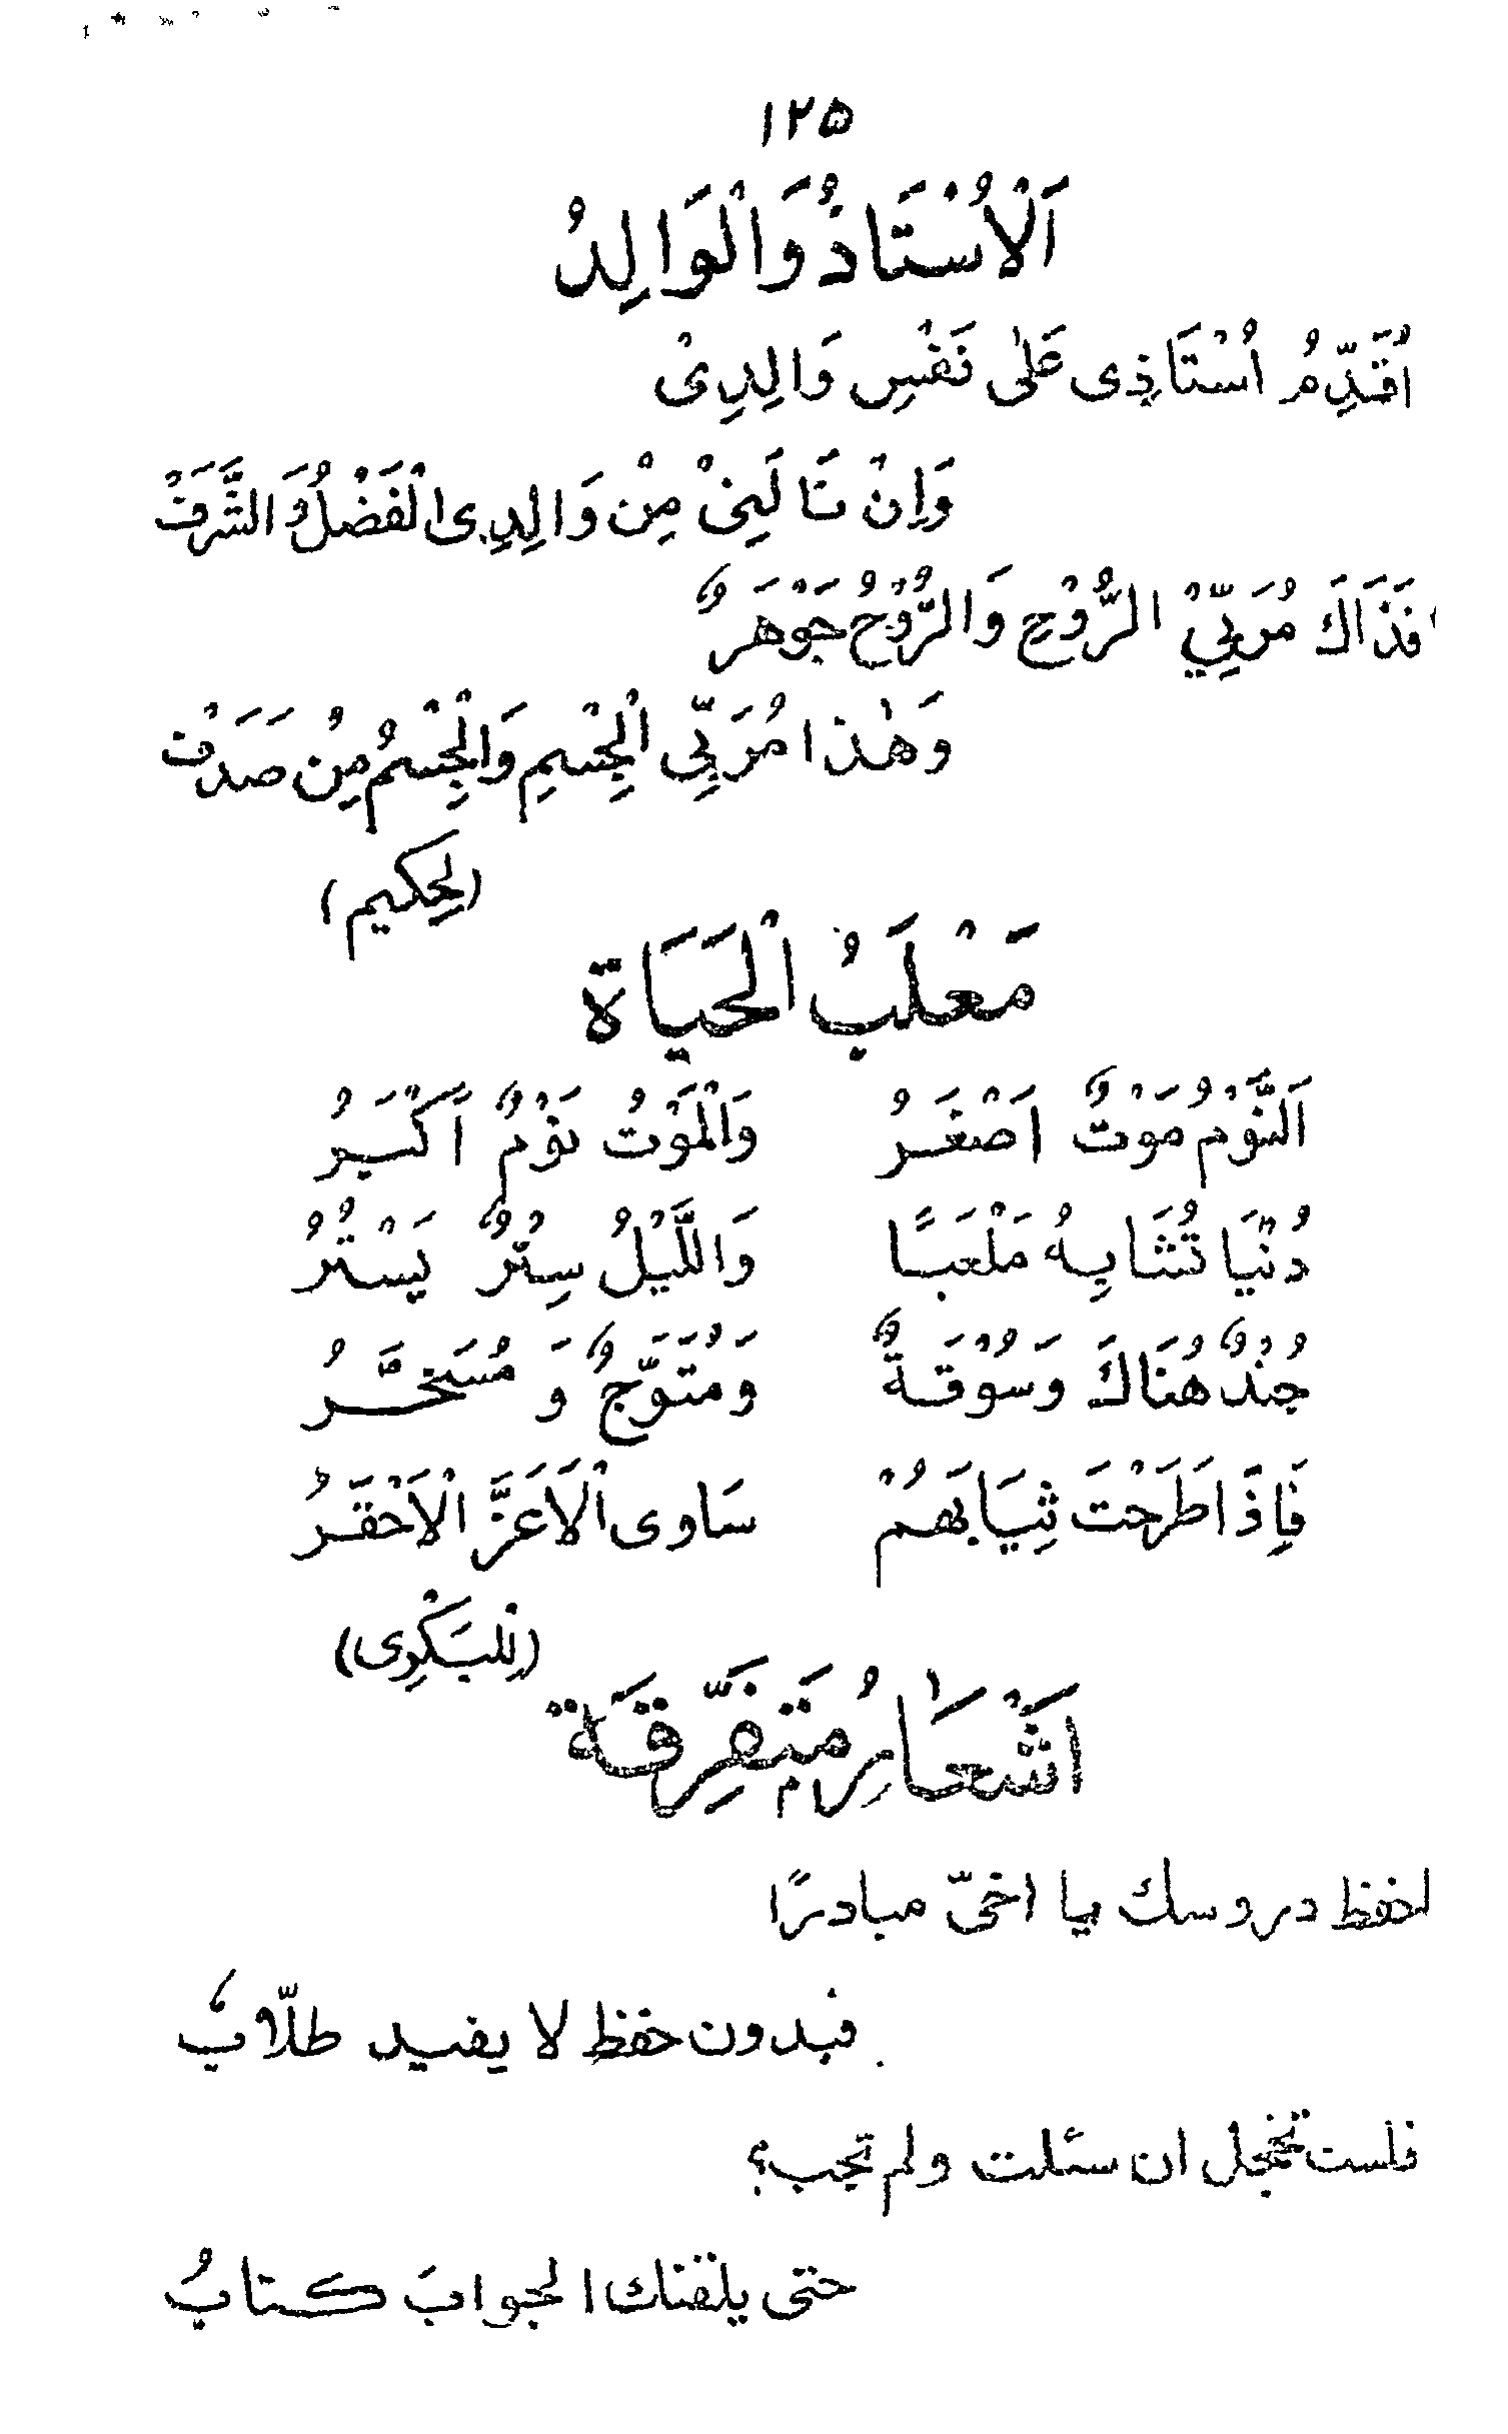 ۱۲۵
اَلْاُسْتَاذُ وَالْوَالِدُ
اُقَدِّمُ اُسْتَاذِی عَلٰی نَفْسِ وَالِدِیْ
وَاِنْ نَالَنِیْ مِنْ وَالِدِی الْفَضْلُ وَ الشَّرَفْ
فَذَاكَ مُرَبِّيْ الرُّوْحِ وَالرُّوْحُ جَوْهَرٌ
وَهٰذَا مُرَبِّی الْجِسْمِ وَالْجِسْمُ مِنْ صَدَفْ
(لحِکیم)
مَعْلَبُ الْحَيَاة
اَلنَّوْمُ مَوْتٌ اَصْغَرُ وَالْمَوْتُ نَوْمٌ اَكْبَرُ
دُنْيَا تُشَابِهُ مَلْعَبًا وَاللَّيْلُ سِتْرٌ يَسْتُرُ
جُنْدٌ هُنَاكَ وَسُوْقَةٌ وَمُتَوَّجٌ وَ مُسَخَّرُ
فَاِذَا طَرَحْتَ ثِيَابَهُمْ سَاوی الْاَعَزَّ الْاَحْقَرُ
(لِلبَكْرِی)
اَشْعَارٌ مُتَفَرِّقَة
احفظ دروسك يا اخیّ مبادرًا
فبدون حفظ لا يفيد طلّابٌ
فلست تخجل ان سئلت ولم تجب؟
حتی يلقنك الجوابَ كتابُ